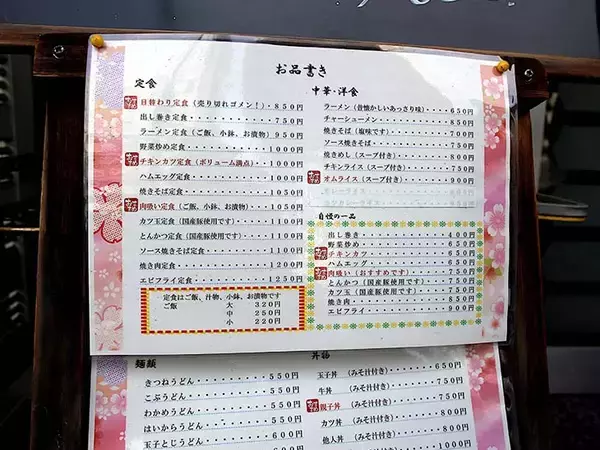 お品書き
定食
日替わり定食（売り切れゴメン！）・850円
出し巻き定食・・・・・・・750円
ラーメン定食（ご飯、小鉢、お漬物）950円
野菜炒め定食・・・・・・・1000円
チキンカツ定食（ボリューム満点）・1000円
ハムエッグ定食・・・・・・1000円
焼きそば定食・・・・・・・1050円
肉吸い定食（ご飯、小鉢、お漬物）・1050円
カツ玉定食（国産豚使用です）・・・1100円
とんかつ定食（国産豚使用です）・・1100円
ソース焼きそば定食・・・・1100円
焼き肉定食・・・・・・・・1200円
エビフライ定食・・・・・・1250円
定食はご飯、汁物、小鉢、お漬物です
ご飯 大 320円
中 250円
小 220円
中華・洋食
ラーメン（昔懐かしいあっさり味）・・・650円
チャーシューメン・・・・・・・850円
焼きそば（塩味です）・・・・・700円
ソース焼きそば・・・・・・・・750円
焼きめし（スープ付き）・・・・800円
チキンライス（スープ付き）・・750円
オムライス（スープ付き）・・・900円
自慢の一品
出し巻き・・・・・・・・400円
野菜炒め・・・・・・・・650円
チキンカツ・・・・・・・650円
ハムエッグ・・・・・・・650円
肉吸い（おすすめです）・・750円
とんかつ（国産豚使用です）750円
カツ玉（国産豚使用です）・750円
焼き肉・・・・・・・・・850円
エビフライ・・・・・・・900円
麺類
きつねうどん・・・・・・550円
こぶうどん・・・・・・・550円
わかめうどん・・・・・・550円
はいからうどん・・・・・550円
玉子とじうどん・・・・・600円
丼物
玉子丼（みそ汁付き）・・・650円
牛丼（みそ汁付き）・・・・750円
親子丼（みそ汁付き）・・・750円
カツ丼（みそ汁付き）・・・800円
他人丼（みそ汁付き）・・・800円
（みそ汁付き）・・・1000円